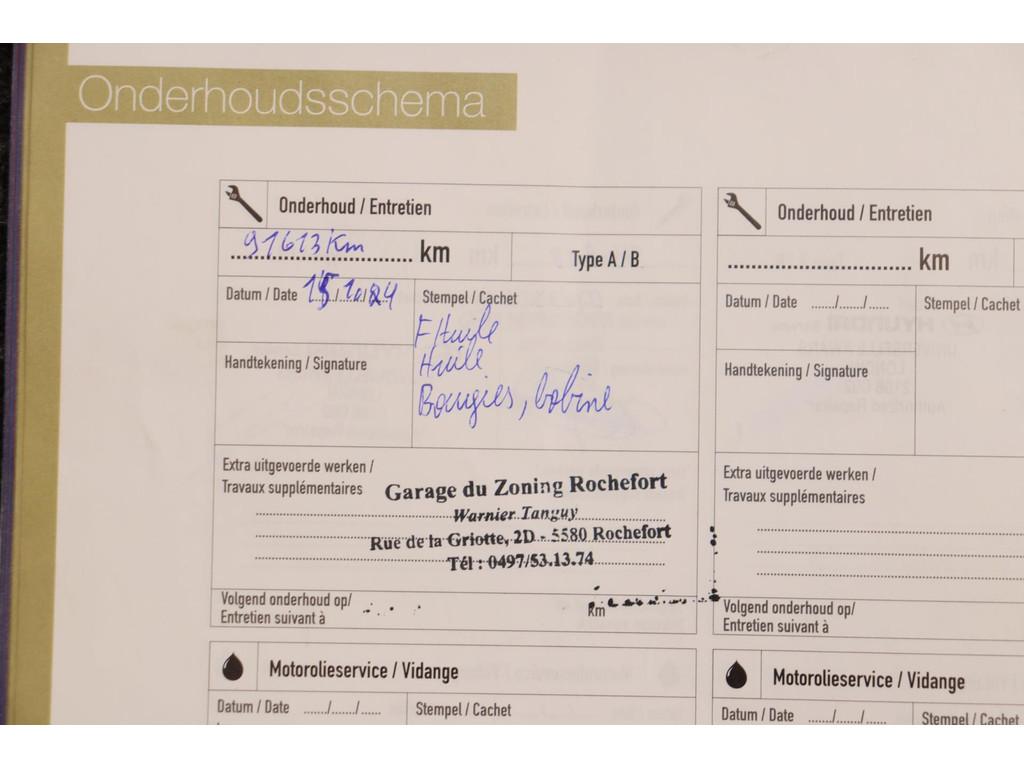 Onderhoudsschema
Onderhoud / Entretien
91613 Km km
Type A / B
Datum / Date 15/10/24
Stempel / Cachet
F Huile
Huile
Bougies, bobine
Handtekening / Signature
Extra uitgevoerde werken /
Travaux supplémentaires
Garage du Zoning Rochefort
Warnier Tanguy
Rue de la Griotte, 2D - 5580 Rochefort
Tél : 0497/53.13.74
Volgend onderhoud op/
Entretien suivant à
Km
Motorolieservice / Vidange
Datum / Date ....../....../......
Stempel / Cachet
Onderhoud / Entretien
km
Datum / Date ....../....../......
Stempel / Cachet
Handtekening / Signature
Extra uitgevoerde werken /
Travaux supplémentaires
Volgend onderhoud op/
Entretien suivant à
Motorolieservice / Vidange
Datum / Date ....../....../......
Stempel / Cachet